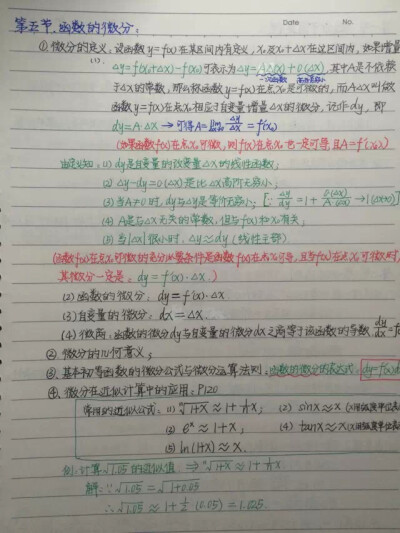 Date No.
第五节.函数的微分:
①微分的定义,设函数y=f(x)在某区间内有定义,x₀及x₀+△x在这区间内,如果增量
(1). △y=f(x₀+△x)-f(x₀)可表示为△y=A△x+O(△x),其中A是不依赖
于△x的常数,那么称函数y=f(x)在点x₀是可微的,而A△x叫做
函数y=f(x)在点x₀相应于自变量增量△x的微分,记作dy,即
dy=A·△x → 可得A=lim △y/△x = f'(x₀)
(如果函数f(x)在点x₀可微,则f(x)在点x₀也一定可导,且A=f'(x₀))
由定义知:(1) dy是自变量的改变量△x的线性函数;
(2) △y-dy=O(△x)是比△x高阶无穷小;
(3) 当A≠0时,dy与△y是等价无穷小;[∵ △y/dy = 1+ O(△x)/A△x →1(△x→0)]
(4) A是与△x无关的常数,但与f(x)和x₀有关;
(5) 当|△x|很小时,△y≈dy(线性主部)
(函数f(x)在点x₀可微的充分必要条件是函数f(x)在点x₀可导,且当f(x)在点x₀可微时,
其微分一定是:dy=f'(x)·△x.)
(2) 函数的微分:dy=f'(x)·△x
(3) 自变量的微分:dx=△x.
(4) 微商:函数的微分dy与自变量的微分dx之商等于该函数的导数 dy/dx=f
②微分的几何意义;
③基本初等函数的微分公式与微分运算法则:函数的微分的表达式:dy=f'(x)d
④微分在近似计算中的应用:P120
常用的近似公式:(1) ⁿ√1+x≈1+1/n x; (2) sinx≈x(x用弧度单位表
(3) eˣ≈1+x; (4) tanx≈x(x用弧度单位表
(5) ln(1+x)≈x.
例:计算√1.05的近似值 ⇒ ⁿ√1+x≈1+1/n x.
解:∵√1.05=√1+0.05
∴√1.05≈1+1/2(0.05)=1.025.